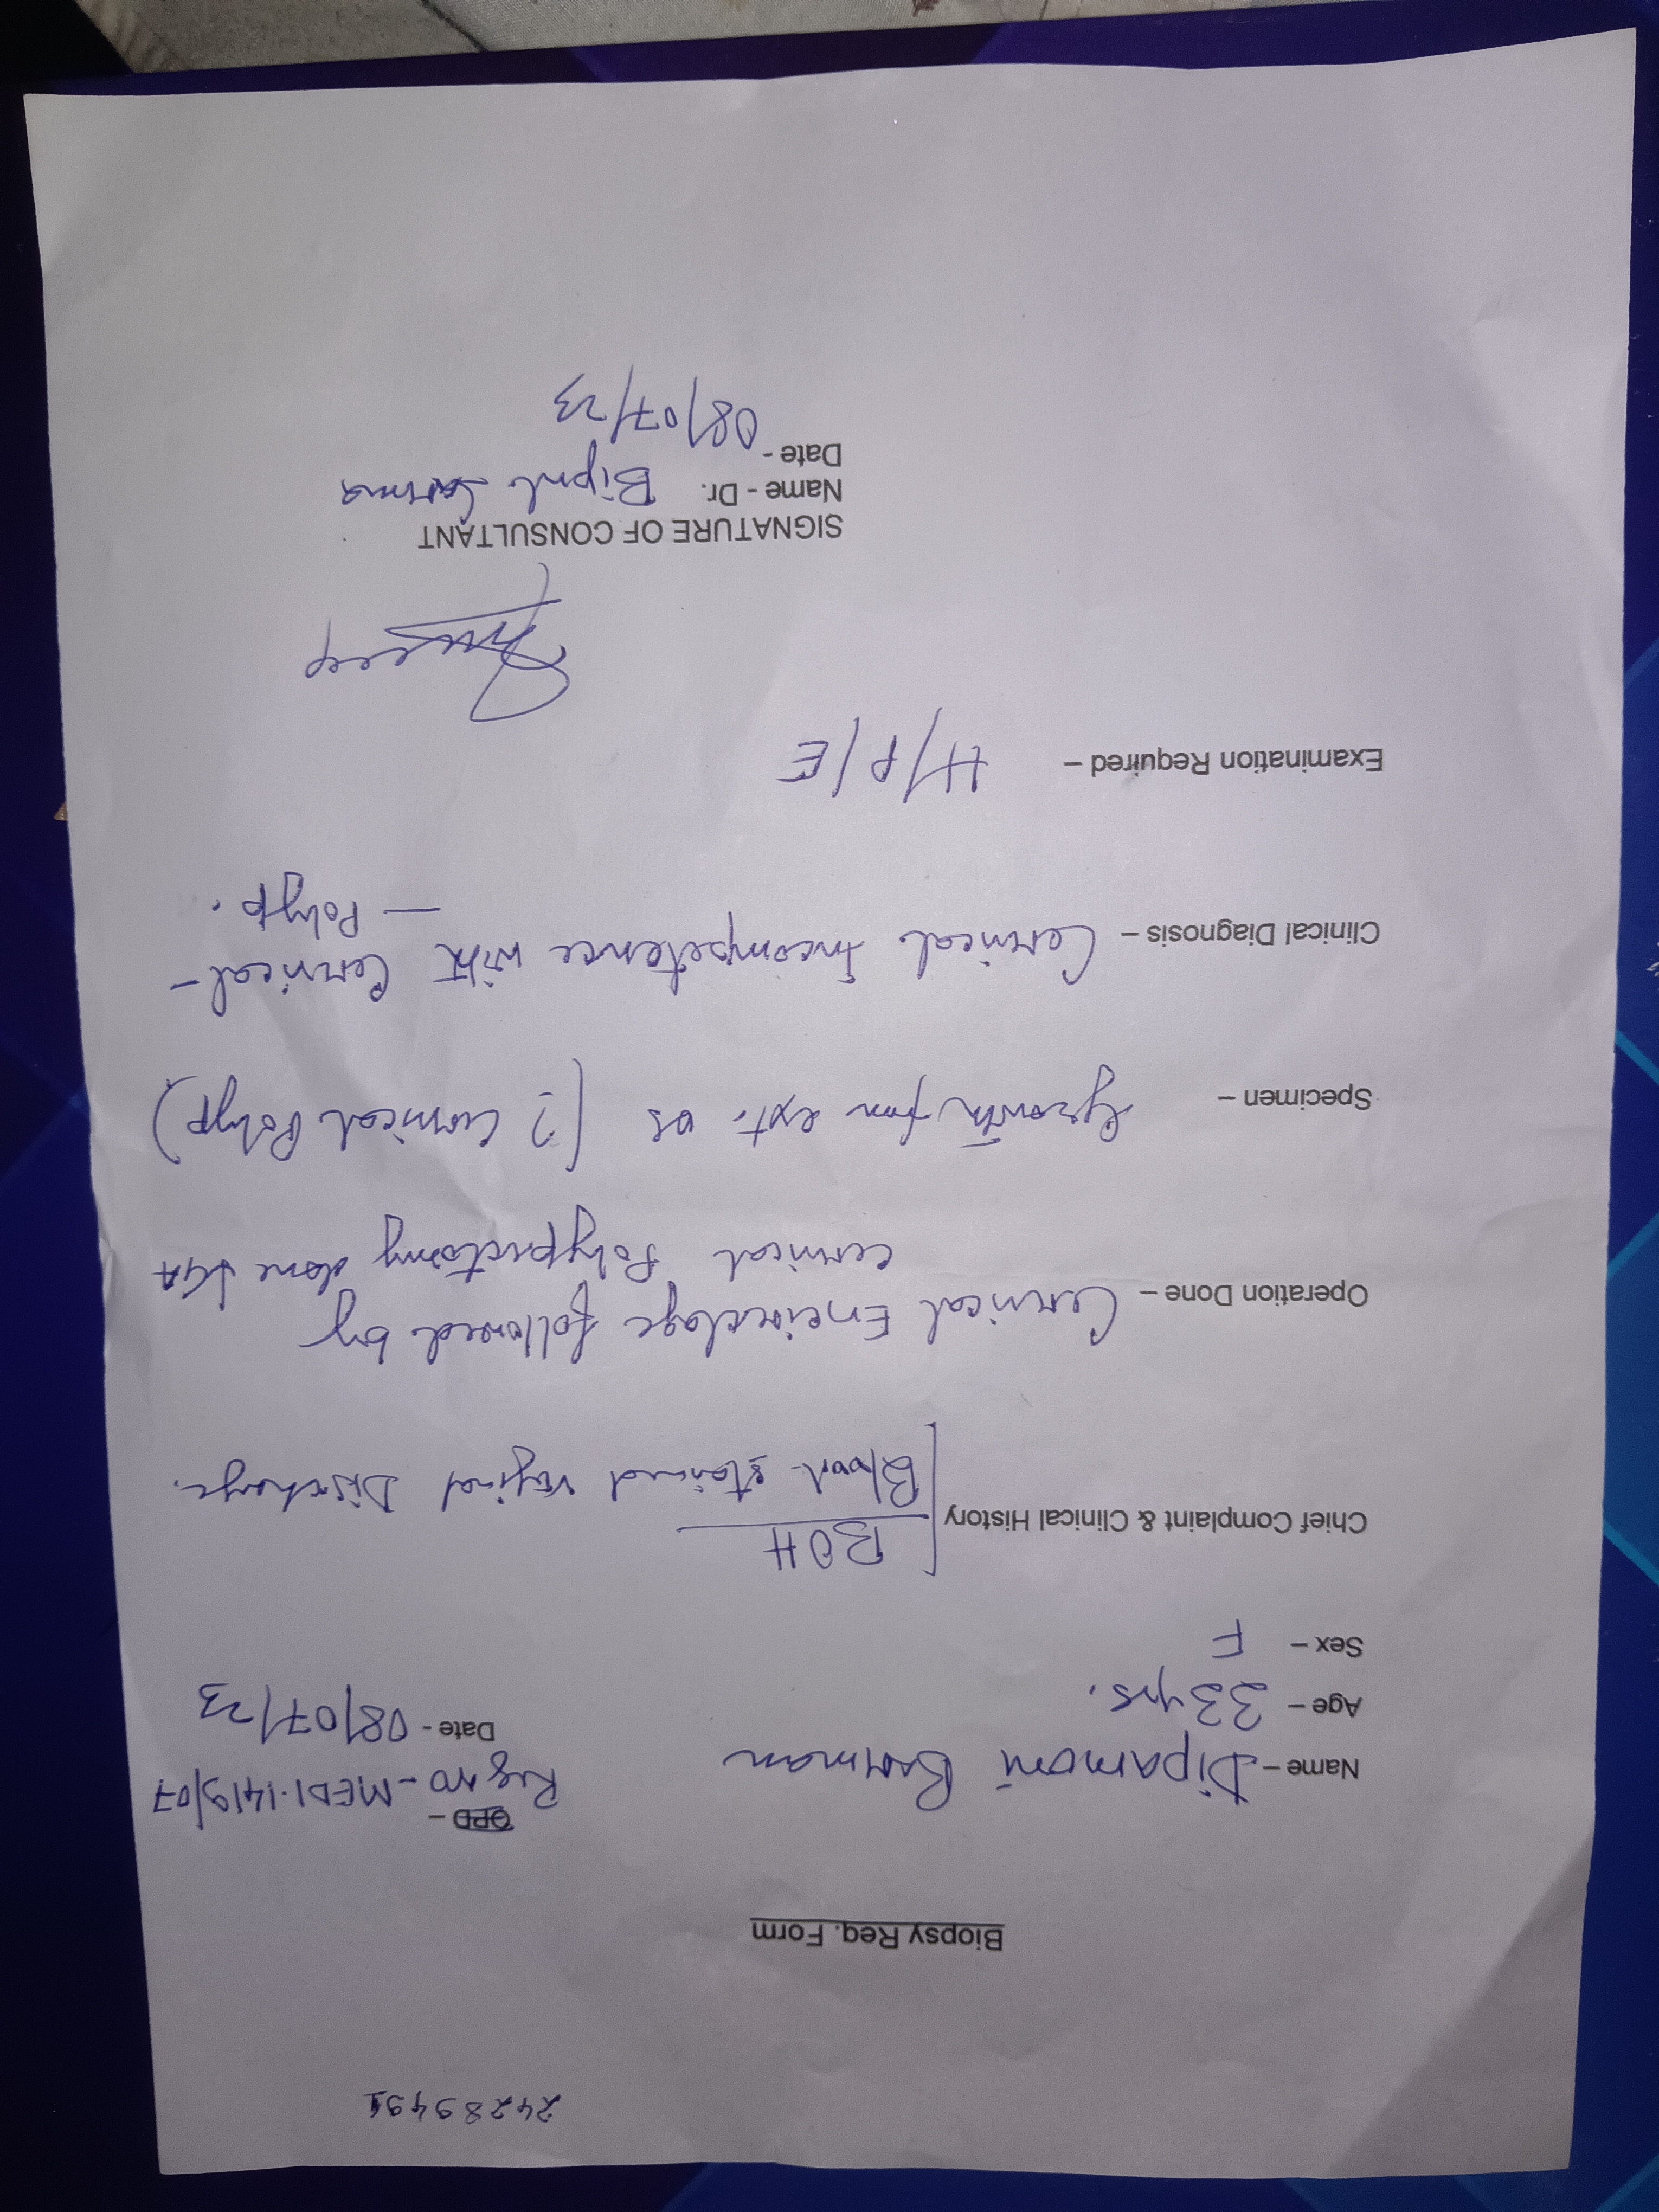 24289491
Biopsy Req. Form
OPD -
Name - Dipamoni Barman Reg no - MEDI.1419/07
Age - 33 yrs. Date - 08/07/23
Sex - F
Chief Complaint & Clinical History [BOH
Blood stained vaginal Discharge.
Operation Done - Cervical Encirclage followed by
cervical Polypectomy done ↓GA
Specimen - Growth from ext. os (? Cervical Polyp)
Clinical Diagnosis - Cervical Incompetence with Cervical -
- Polyp.
Examination Required - H/P/E
SIGNATURE OF CONSULTANT
Name - Dr. Bipul Sarma
Date - 08/07/23